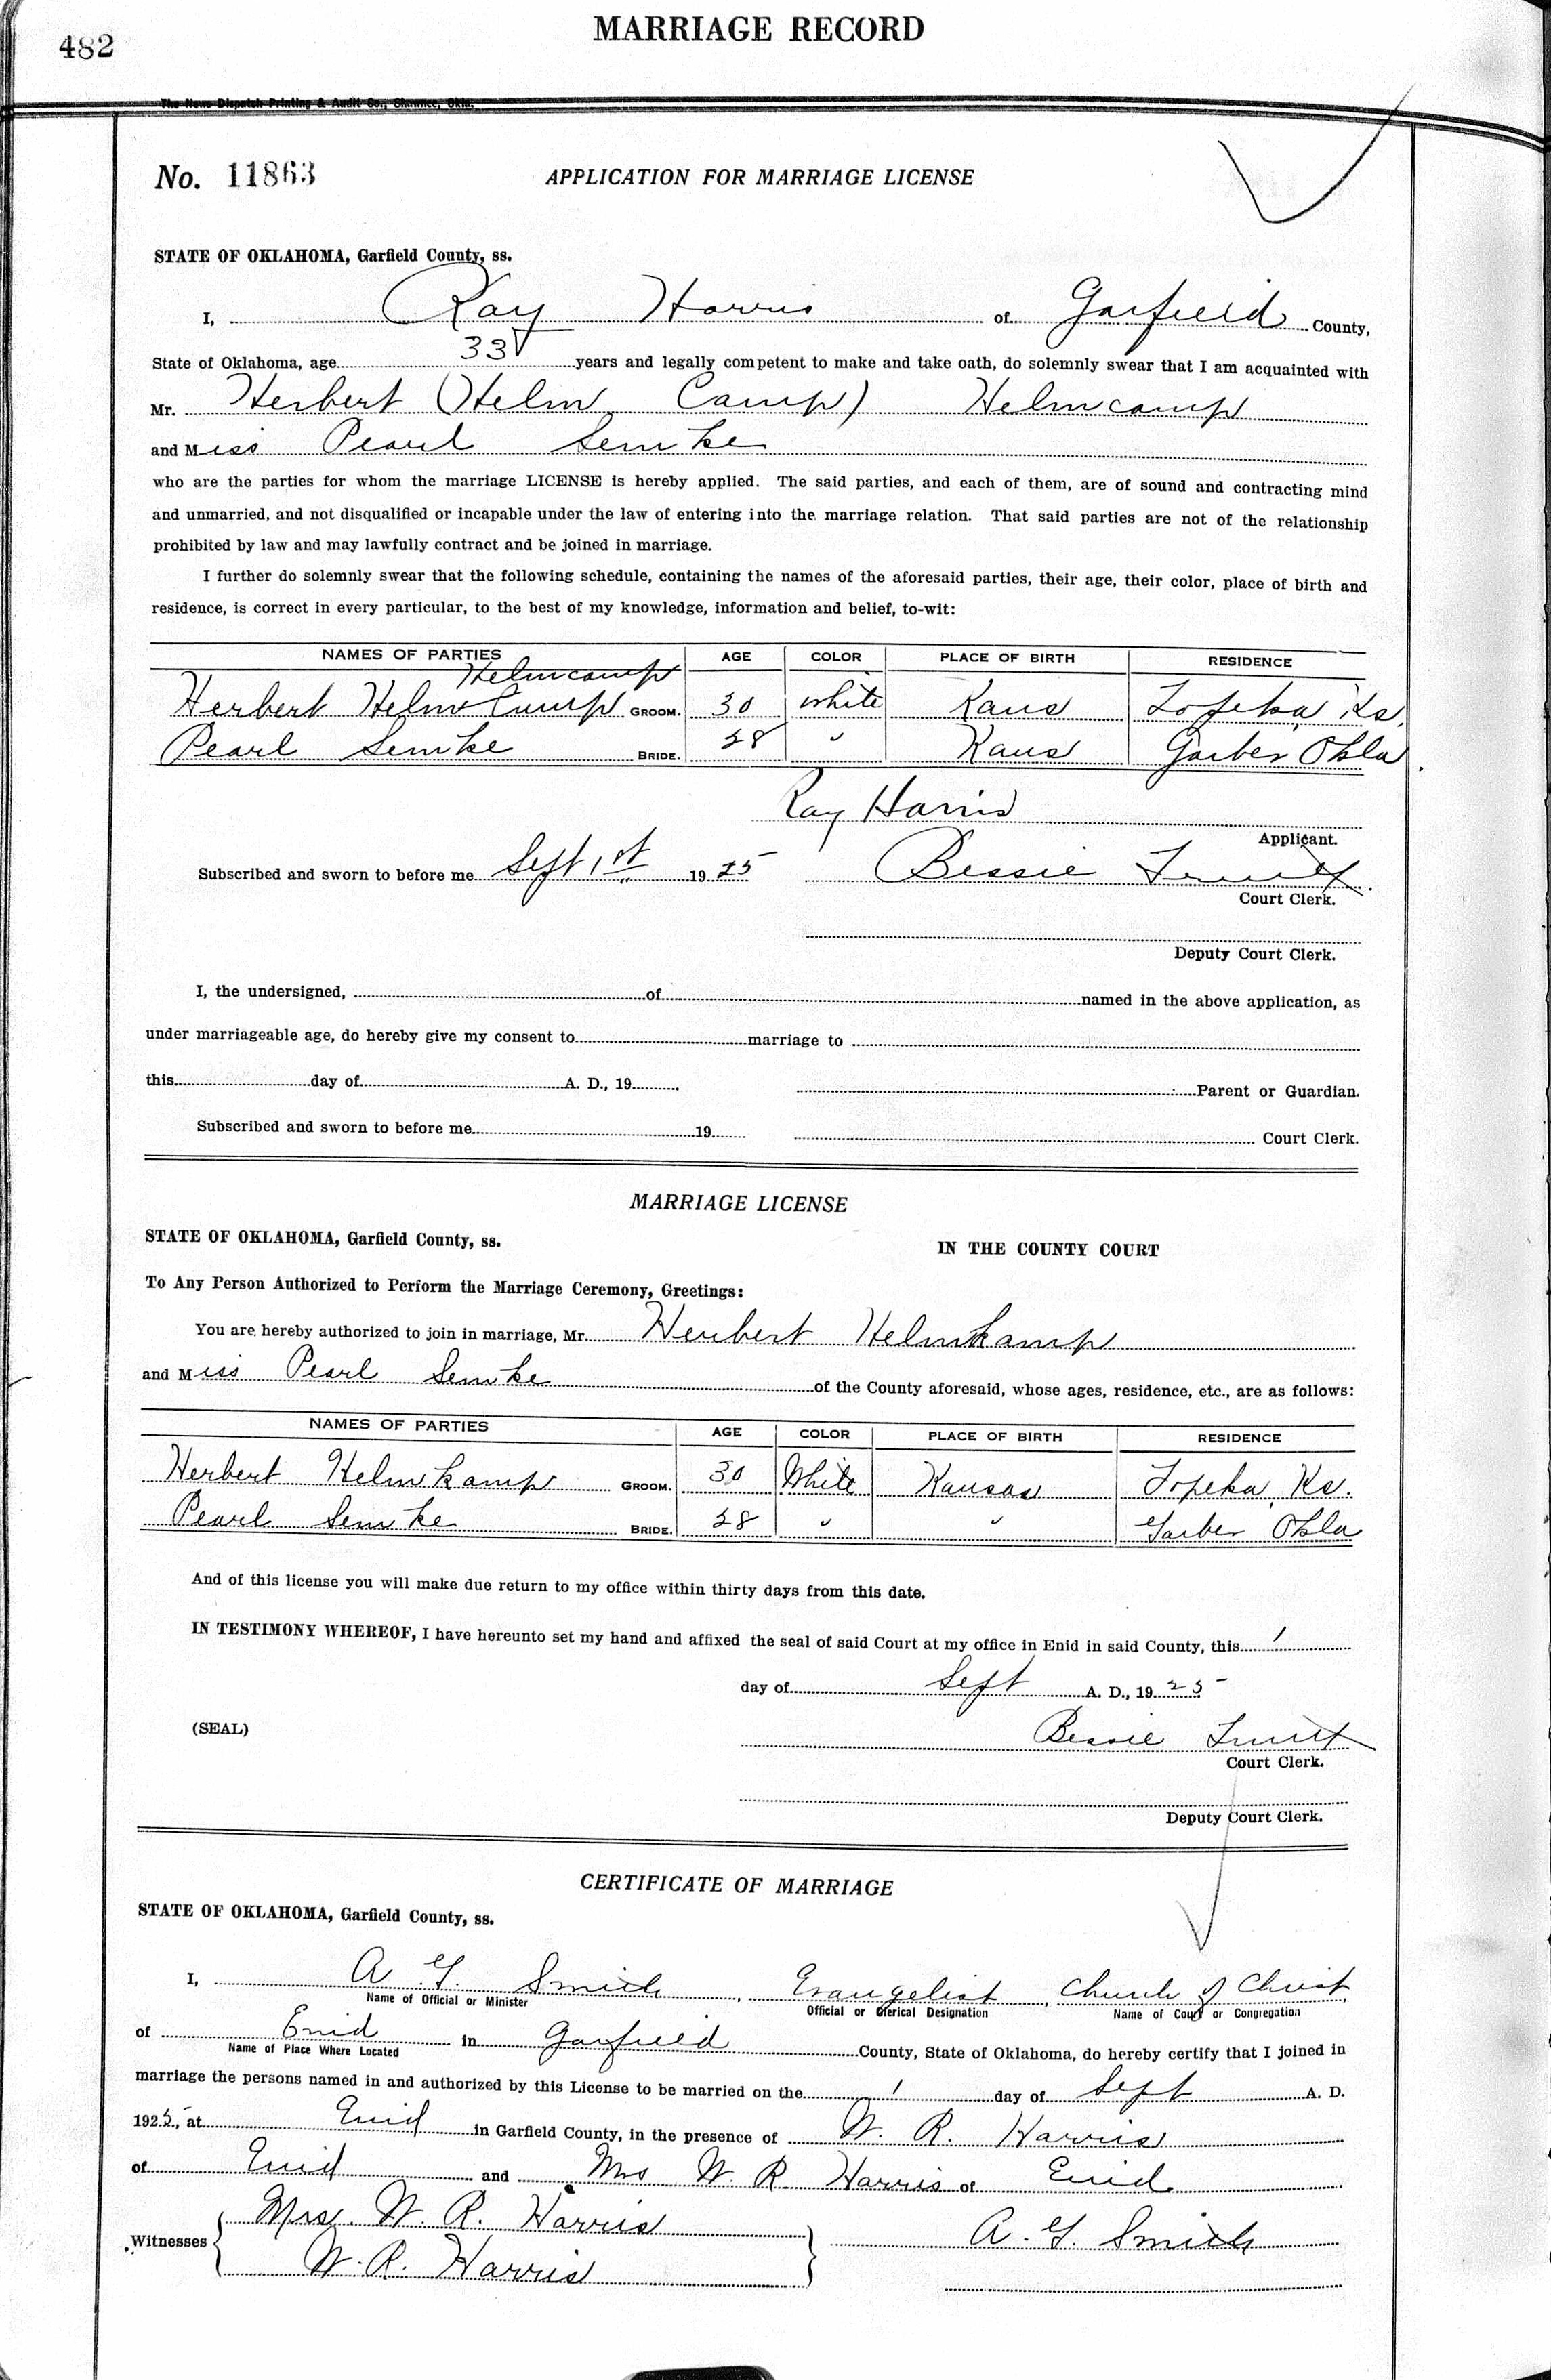 482
MARRIAGE RECORD
The News Dispatch Printing & Audit Co., Shawnee, Okla.
No. 11863
APPLICATION FOR MARRIAGE LICENSE
STATE OF OKLAHOMA, Garfield County, ss.
I, Ray Harris of Garfield County,
State of Oklahoma, age 33 years and legally competent to make and take oath, do solemnly swear that I am acquainted with
Mr. Herbert (Helm Camp) Helmcamp
and Miss Pearl Semke
who are the parties for whom the marriage LICENSE is hereby applied. The said parties, and each of them, are of sound and contracting mind
and unmarried, and not disqualified or incapable under the law of entering into the marriage relation. That said parties are not of the relationship
prohibited by law and may lawfully contract and be joined in marriage.
I further do solemnly swear that the following schedule, containing the names of the aforesaid parties, their age, their color, place of birth and
residence, is correct in every particular, to the best of my knowledge, information and belief, to-wit:
NAMES OF PARTIES AGE COLOR PLACE OF BIRTH RESIDENCE
Helmcamp
Herbert Helm Camp GROOM. 30 White Kans Topeka, Ks.
Pearl Semke BRIDE. 28 " Kans Garber, Okla.
Ray Harris
Applicant.
Subscribed and sworn to before me Sept 1st 1925 Bessie Truitt
Court Clerk.
Deputy Court Clerk.
I, the undersigned, of named in the above application, as
under marriageable age, do hereby give my consent to marriage to
this day of A. D., 19 Parent or Guardian.
Subscribed and sworn to before me 19 Court Clerk.
MARRIAGE LICENSE
STATE OF OKLAHOMA, Garfield County, ss.
IN THE COUNTY COURT
To Any Person Authorized to Perform the Marriage Ceremony, Greetings:
You are hereby authorized to join in marriage, Mr. Herbert Helmkamp
and Miss Pearl Semke of the County aforesaid, whose ages, residence, etc., are as follows:
NAMES OF PARTIES AGE COLOR PLACE OF BIRTH RESIDENCE
Herbert Helmkamp GROOM. 30 White Kansas Topeka, Ks.
Pearl Semke BRIDE. 28 " " Garber Okla
And of this license you will make due return to my office within thirty days from this date.
IN TESTIMONY WHEREOF, I have hereunto set my hand and affixed the seal of said Court at my office in Enid in said County, this 1
day of Sept A. D., 1925
(SEAL)
Bessie Truitt
Court Clerk.
Deputy Court Clerk.
CERTIFICATE OF MARRIAGE
STATE OF OKLAHOMA, Garfield County, ss.
I, A. G. Smith, Evangelist, Church of Christ,
Name of Official or Minister Official or Clerical Designation Name of Court or Congregation
of Enid in Garfield County, State of Oklahoma, do hereby certify that I joined in
Name of Place Where Located
marriage the persons named in and authorized by this License to be married on the 1 day of Sept A. D.
1925, at Enid in Garfield County, in the presence of W. R. Harris
of Enid and Mrs W. R. Harris of Enid
Mrs. W. R. Harris
Witnesses
A. G. Smith
W. R. Harris